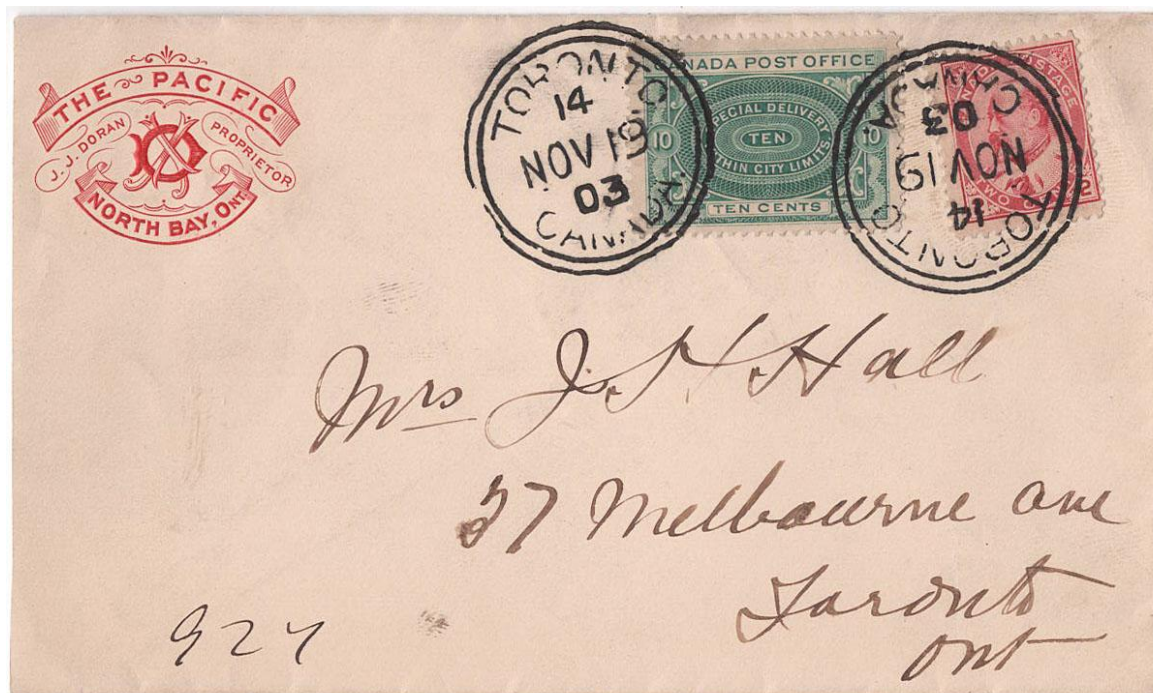 THE PACIFIC
J. J. DORAN PROPRIETOR
NORTH BAY, ONT.
TORONTO
14
NOV 19
03
CANADA
CANADA POST OFFICE
SPECIAL DELIVERY
10 TEN 10
WITHIN CITY LIMITS
TEN CENTS
TORONTO
14
NOV 19
03
CANADA
POSTAGE
TWO CENTS 2
Mrs J. H Hall
37 Melbourne ave
Toronto
Ont
924